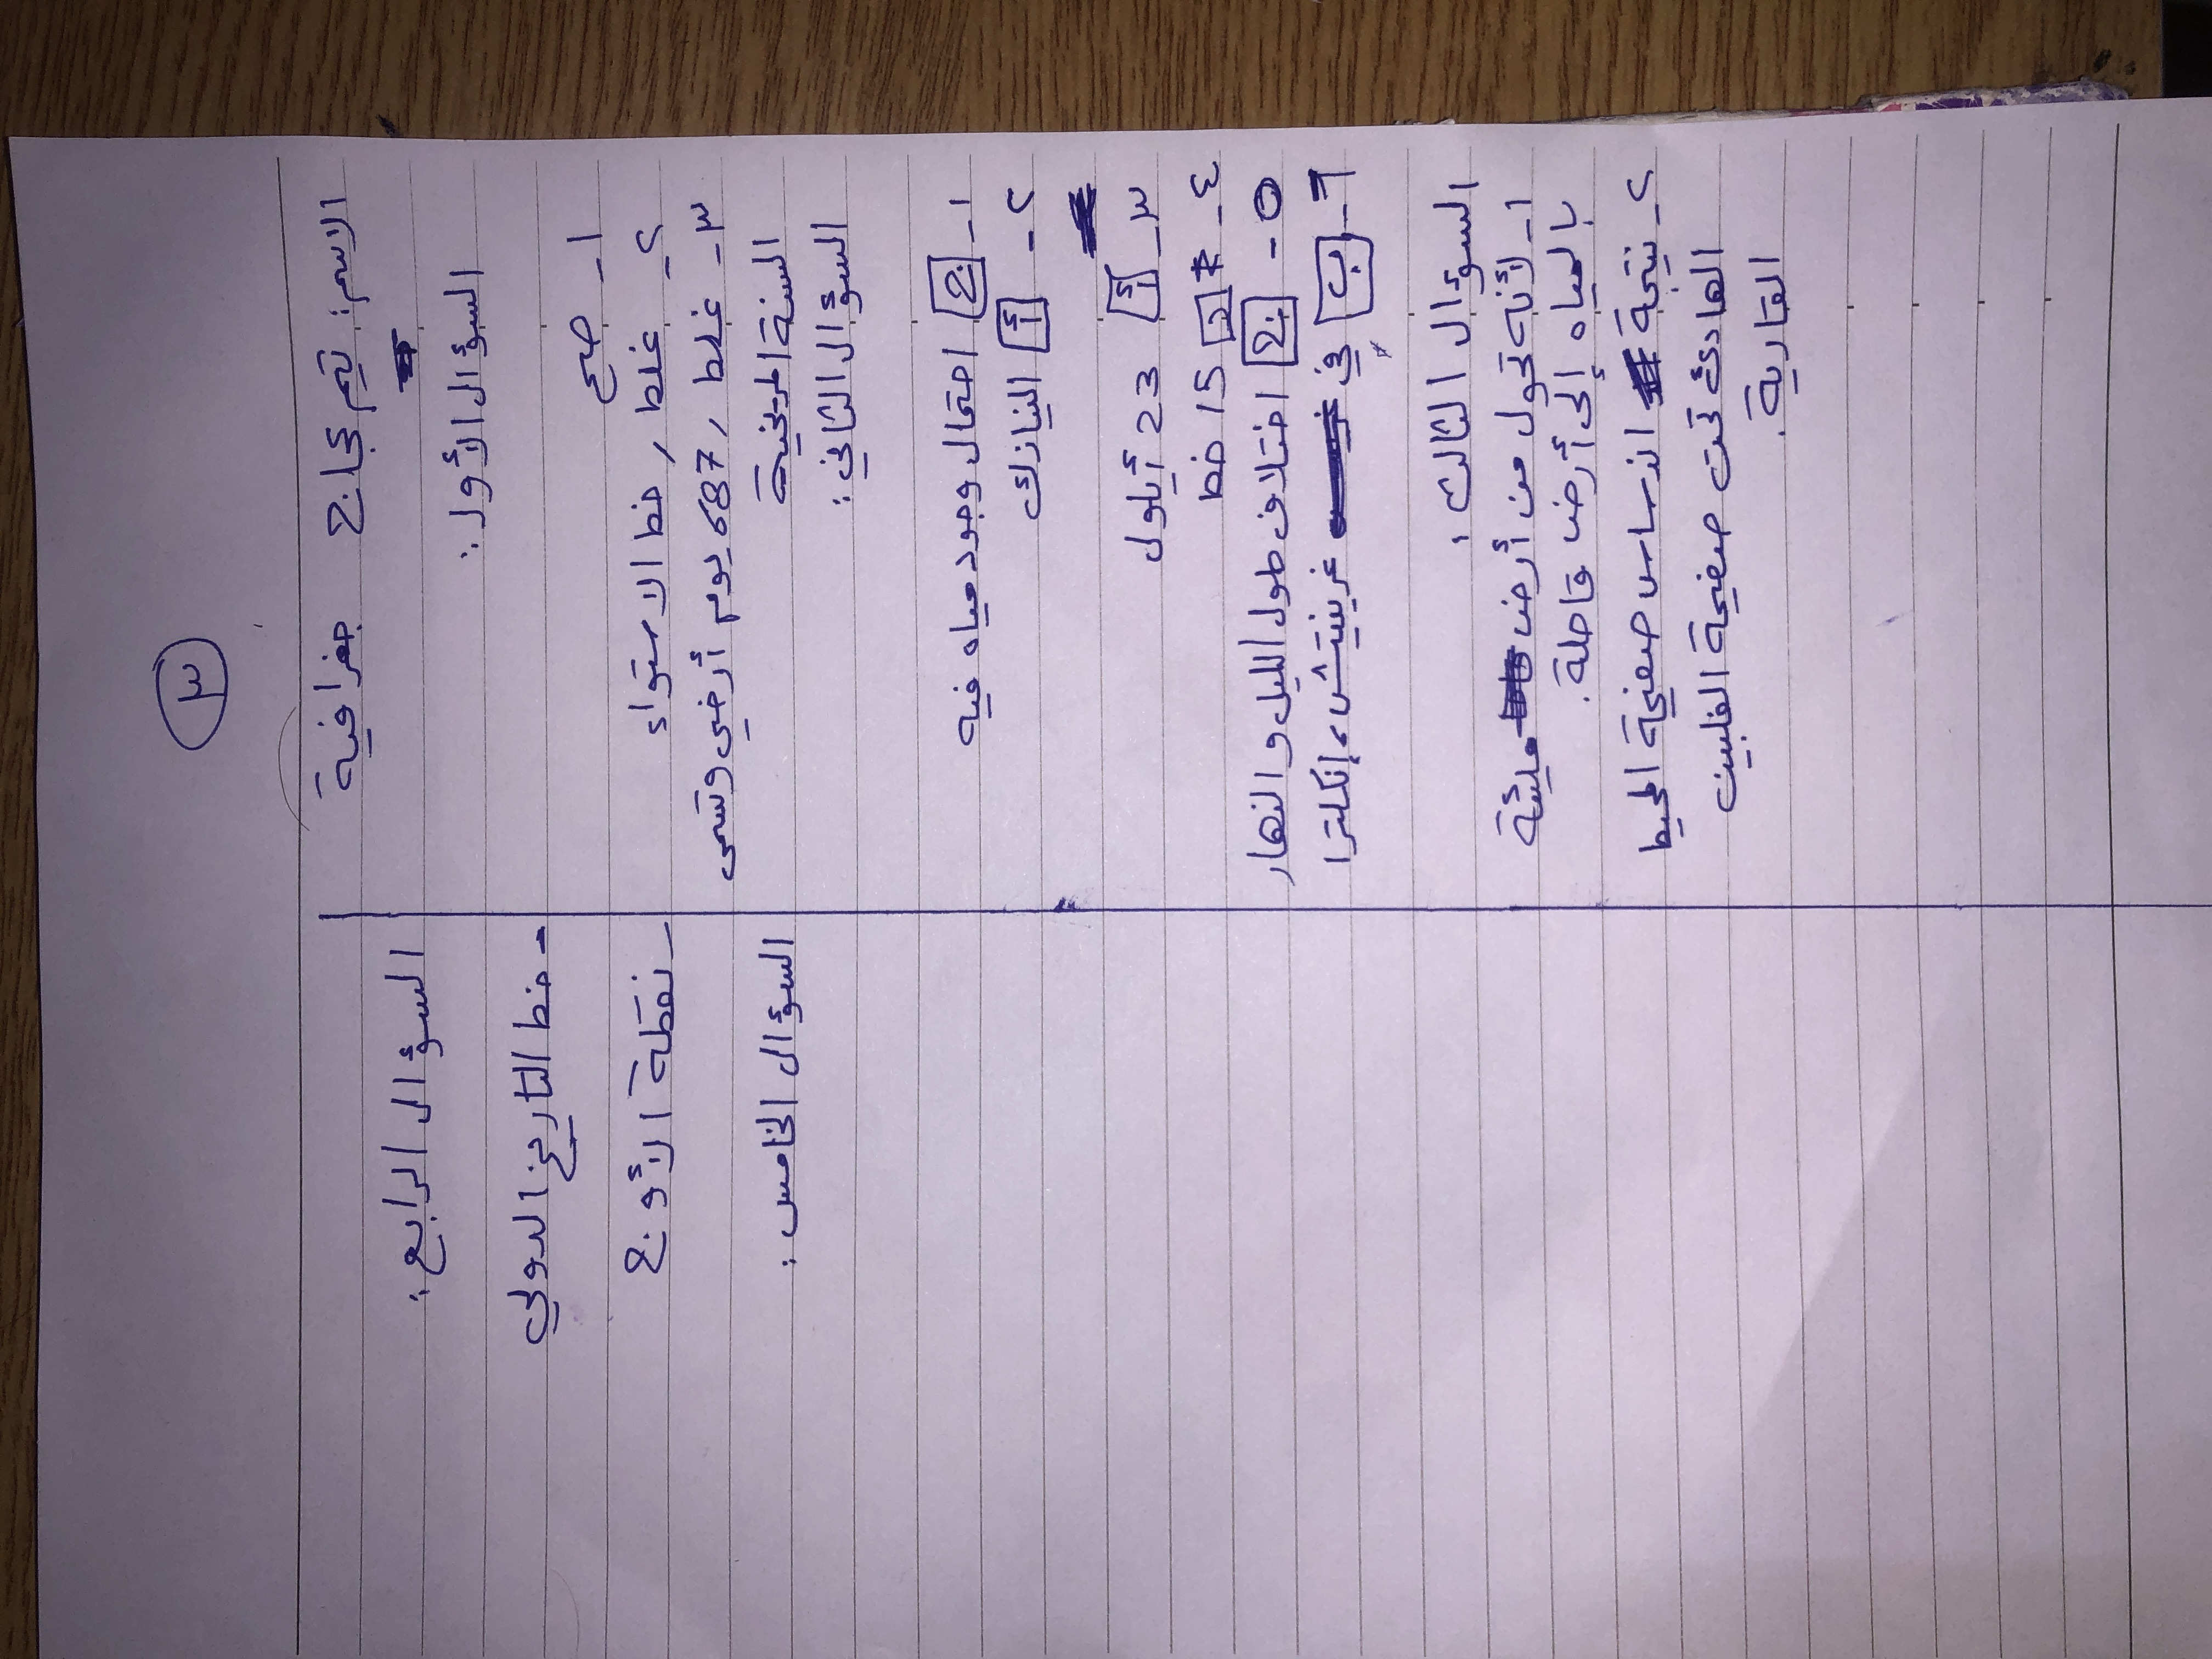 ٣
الاسم: تيم عجاج جغرافية
السؤال الأول:
١- صح
٢- غلط , خط الاستواء
٣- غلط , 687 يوم أرضي وتسمى
السنة المريخية
السؤال الثاني:
١- ج احتمال وجود مياه فيه
٢- أ النيازك
٣- أ 23 أيلول
٤- د 15 خط
٥- ج اختلاف طول الليل و النهار
٦- ب في غرينيتش، إنكلترا
السؤال الثالث:
١- لأنه تحول من أرض مليئة
بالمياه إلى أرض قاحلة.
٢- نتيجة اندساس صفيحة المحيط
الهادئ تحت صفيحة الفلبين
القارية.
السؤال الرابع:
- خط التاريخ الدولي
- نقطة الأوج
السؤال الخامس: